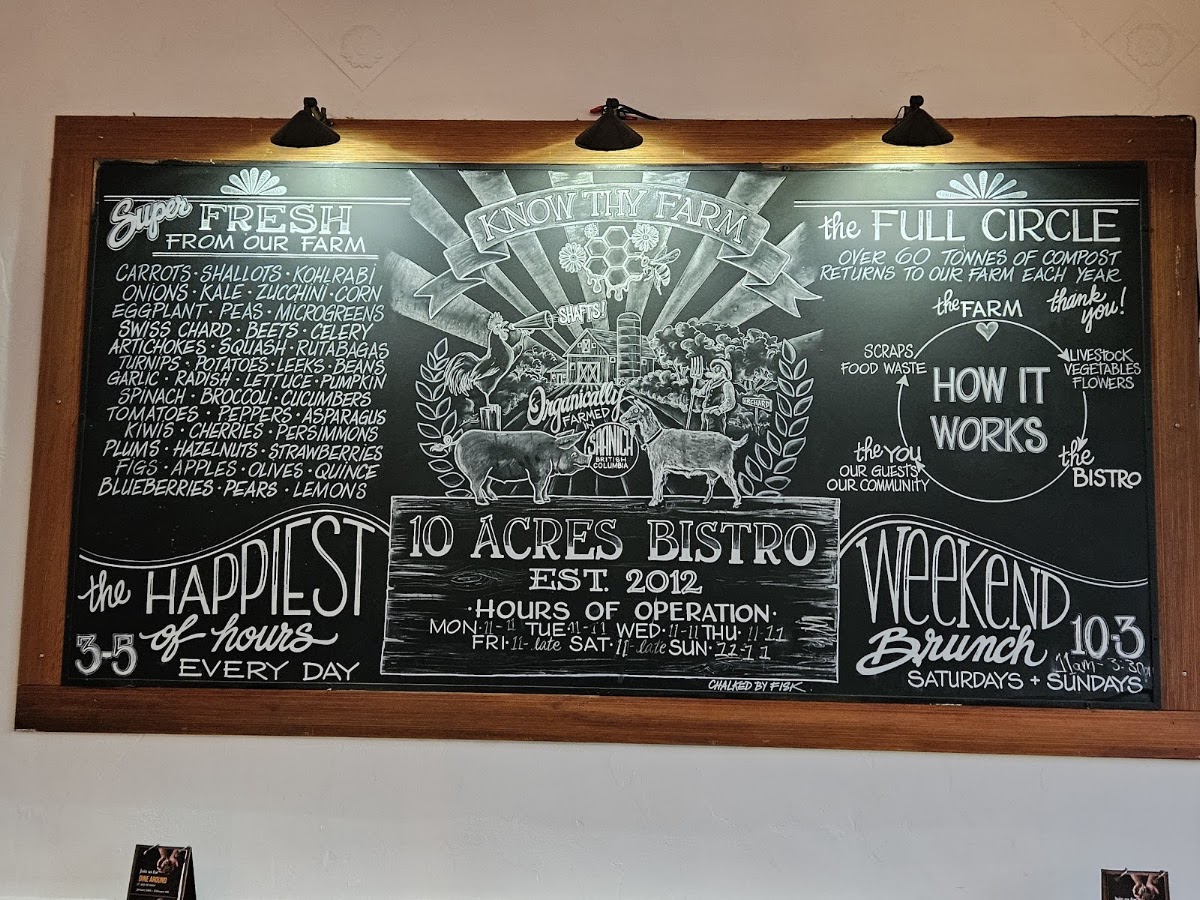 Super FRESH
FROM OUR FARM
CARROTS · SHALLOTS · KOHLRABI
ONIONS · KALE · ZUCCHINI · CORN
EGGPLANT · PEAS · MICROGREENS
SWISS CHARD · BEETS · CELERY
ARTICHOKES · SQUASH · RUTABAGAS
TURNIPS · POTATOES · LEEKS · BEANS
GARLIC · RADISH · LETTUCE · PUMPKIN
SPINACH · BROCCOLI · CUCUMBERS
TOMATOES · PEPPERS · ASPARAGUS
KIWIS · CHERRIES · PERSIMMONS
PLUMS · HAZELNUTS · STRAWBERRIES
FIGS · APPLES · OLIVES · QUINCE
BLUEBERRIES · PEARS · LEMONS
the HAPPIEST
of hours
3-5
EVERY DAY
KNOW THY FARM
SHAFTS!
Organically
FARMED
ORCHARD
SAANICH
BRITISH
COLUMBIA
10 ACRES BISTRO
EST. 2012
· HOURS OF OPERATION ·
MON · 11-11 TUE · 11-11 WED · 11-11 THU · 11-11
FRI · 11-late SAT · 11-late SUN · 11-11
CHALKED BY FISK
the FULL CIRCLE
OVER 60 TONNES OF COMPOST
RETURNS TO OUR FARM EACH YEAR
the FARM
thank
you!
SCRAPS
FOOD WASTE
LIVESTOCK
VEGETABLES
FLOWERS
HOW IT
WORKS
the YOU
OUR GUESTS
OUR COMMUNITY
the
BISTRO
WEEKEND
Brunch
10-3
11am-3:30pm
SATURDAYS + SUNDAYS
Join us for
DINE AROUND